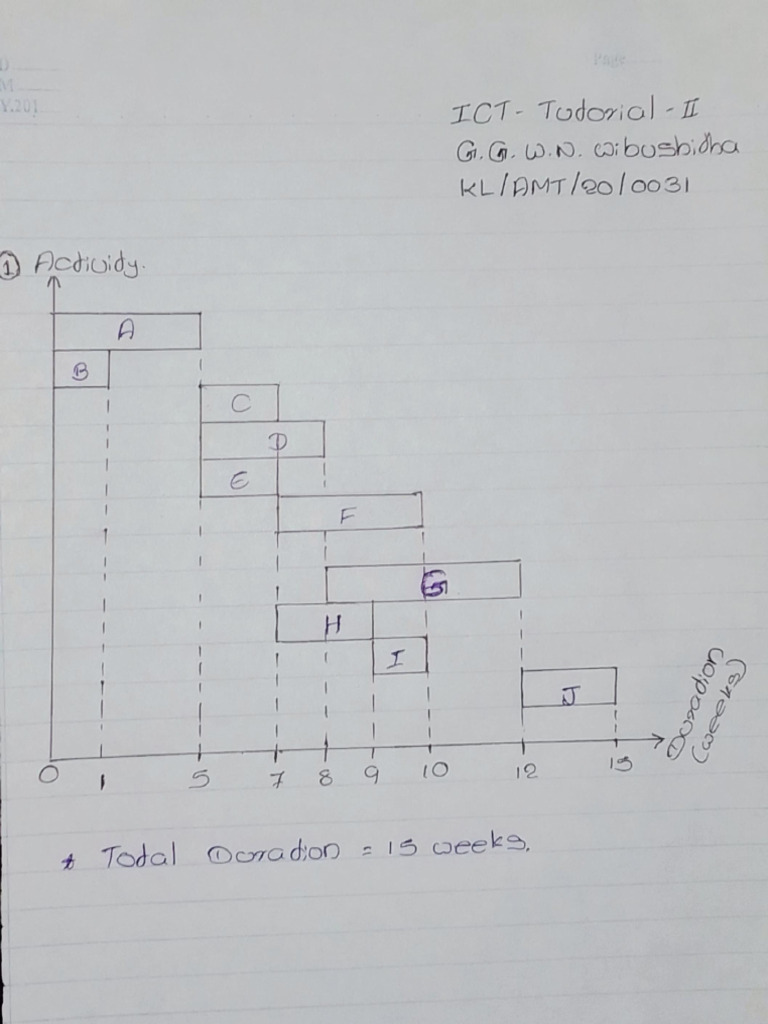 Page
D
M
Y.201
ICT - Tudorial - II
G. G. W. N. Wibushidha
KL/AMT/20/0031
① Acdividy.
A
B
C
D
E
F
G
H
I
J
0 1 5 7 8 9 10 12 15
Duradion
(weeks)
* Todal Duradion = 15 weeks.